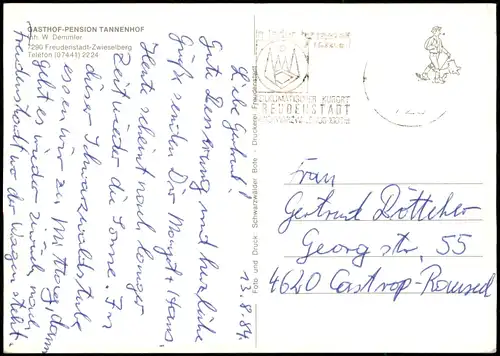 GASTHOF-PENSION TANNENHOF
Inh: W. Demmler
7290 Freudenstadt-Zwieselberg
Telefon (07441) 2224
13.8.84
Liebe Gertrud!
Gute Besserung und herzliche
Grüße senden Dir Margot + Hans.
Heute scheint nach langer
Zeit wieder die Sonne. In
dieser Schwarzwaldstube
essen wir zu Mittag, dann
geht es wieder zurück nach
Freudenstadt wo der Wagen steht.
Foto und Druck Schwarzwälder Bote · Druckerei Freudenstadt
HEILKLIMATISCHER KURORT
FREUDENSTADT
Frau
Gertrud Böttcher
Georgstr. 55
4620 Castrop-Rauxel